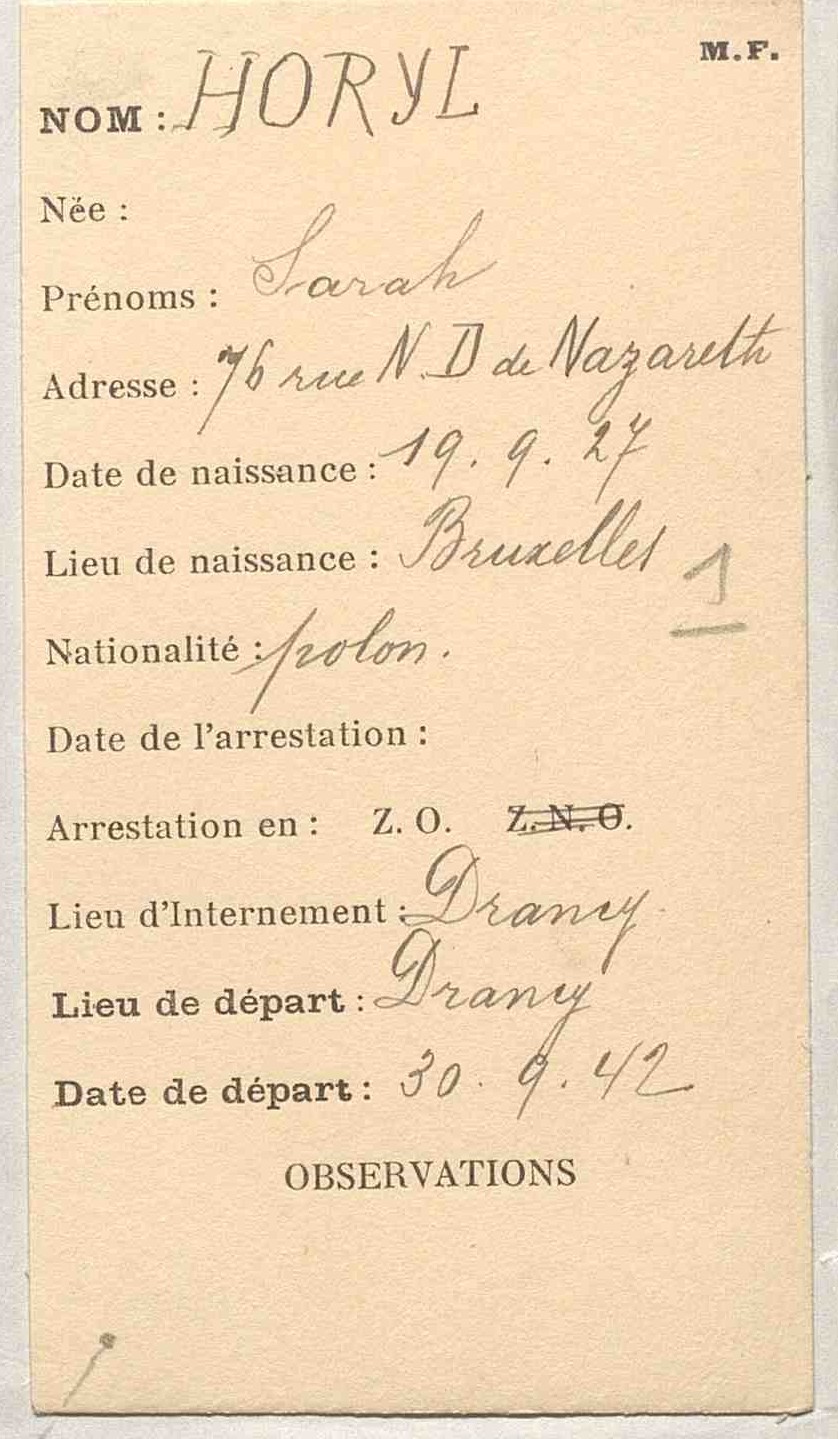 M.F.
NOM : HORYL
Née :
Prénoms : Sarah
Adresse : 76 rue N.D de Nazareth
Date de naissance : 19.9.27
Lieu de naissance : Bruxelles
1
Nationalité : polon.
Date de l'arrestation :
Arrestation en : Z.O. Z.N.O.
Lieu d'Internement : Drancy
Lieu de départ : Drancy
Date de départ : 30.9.42
OBSERVATIONS